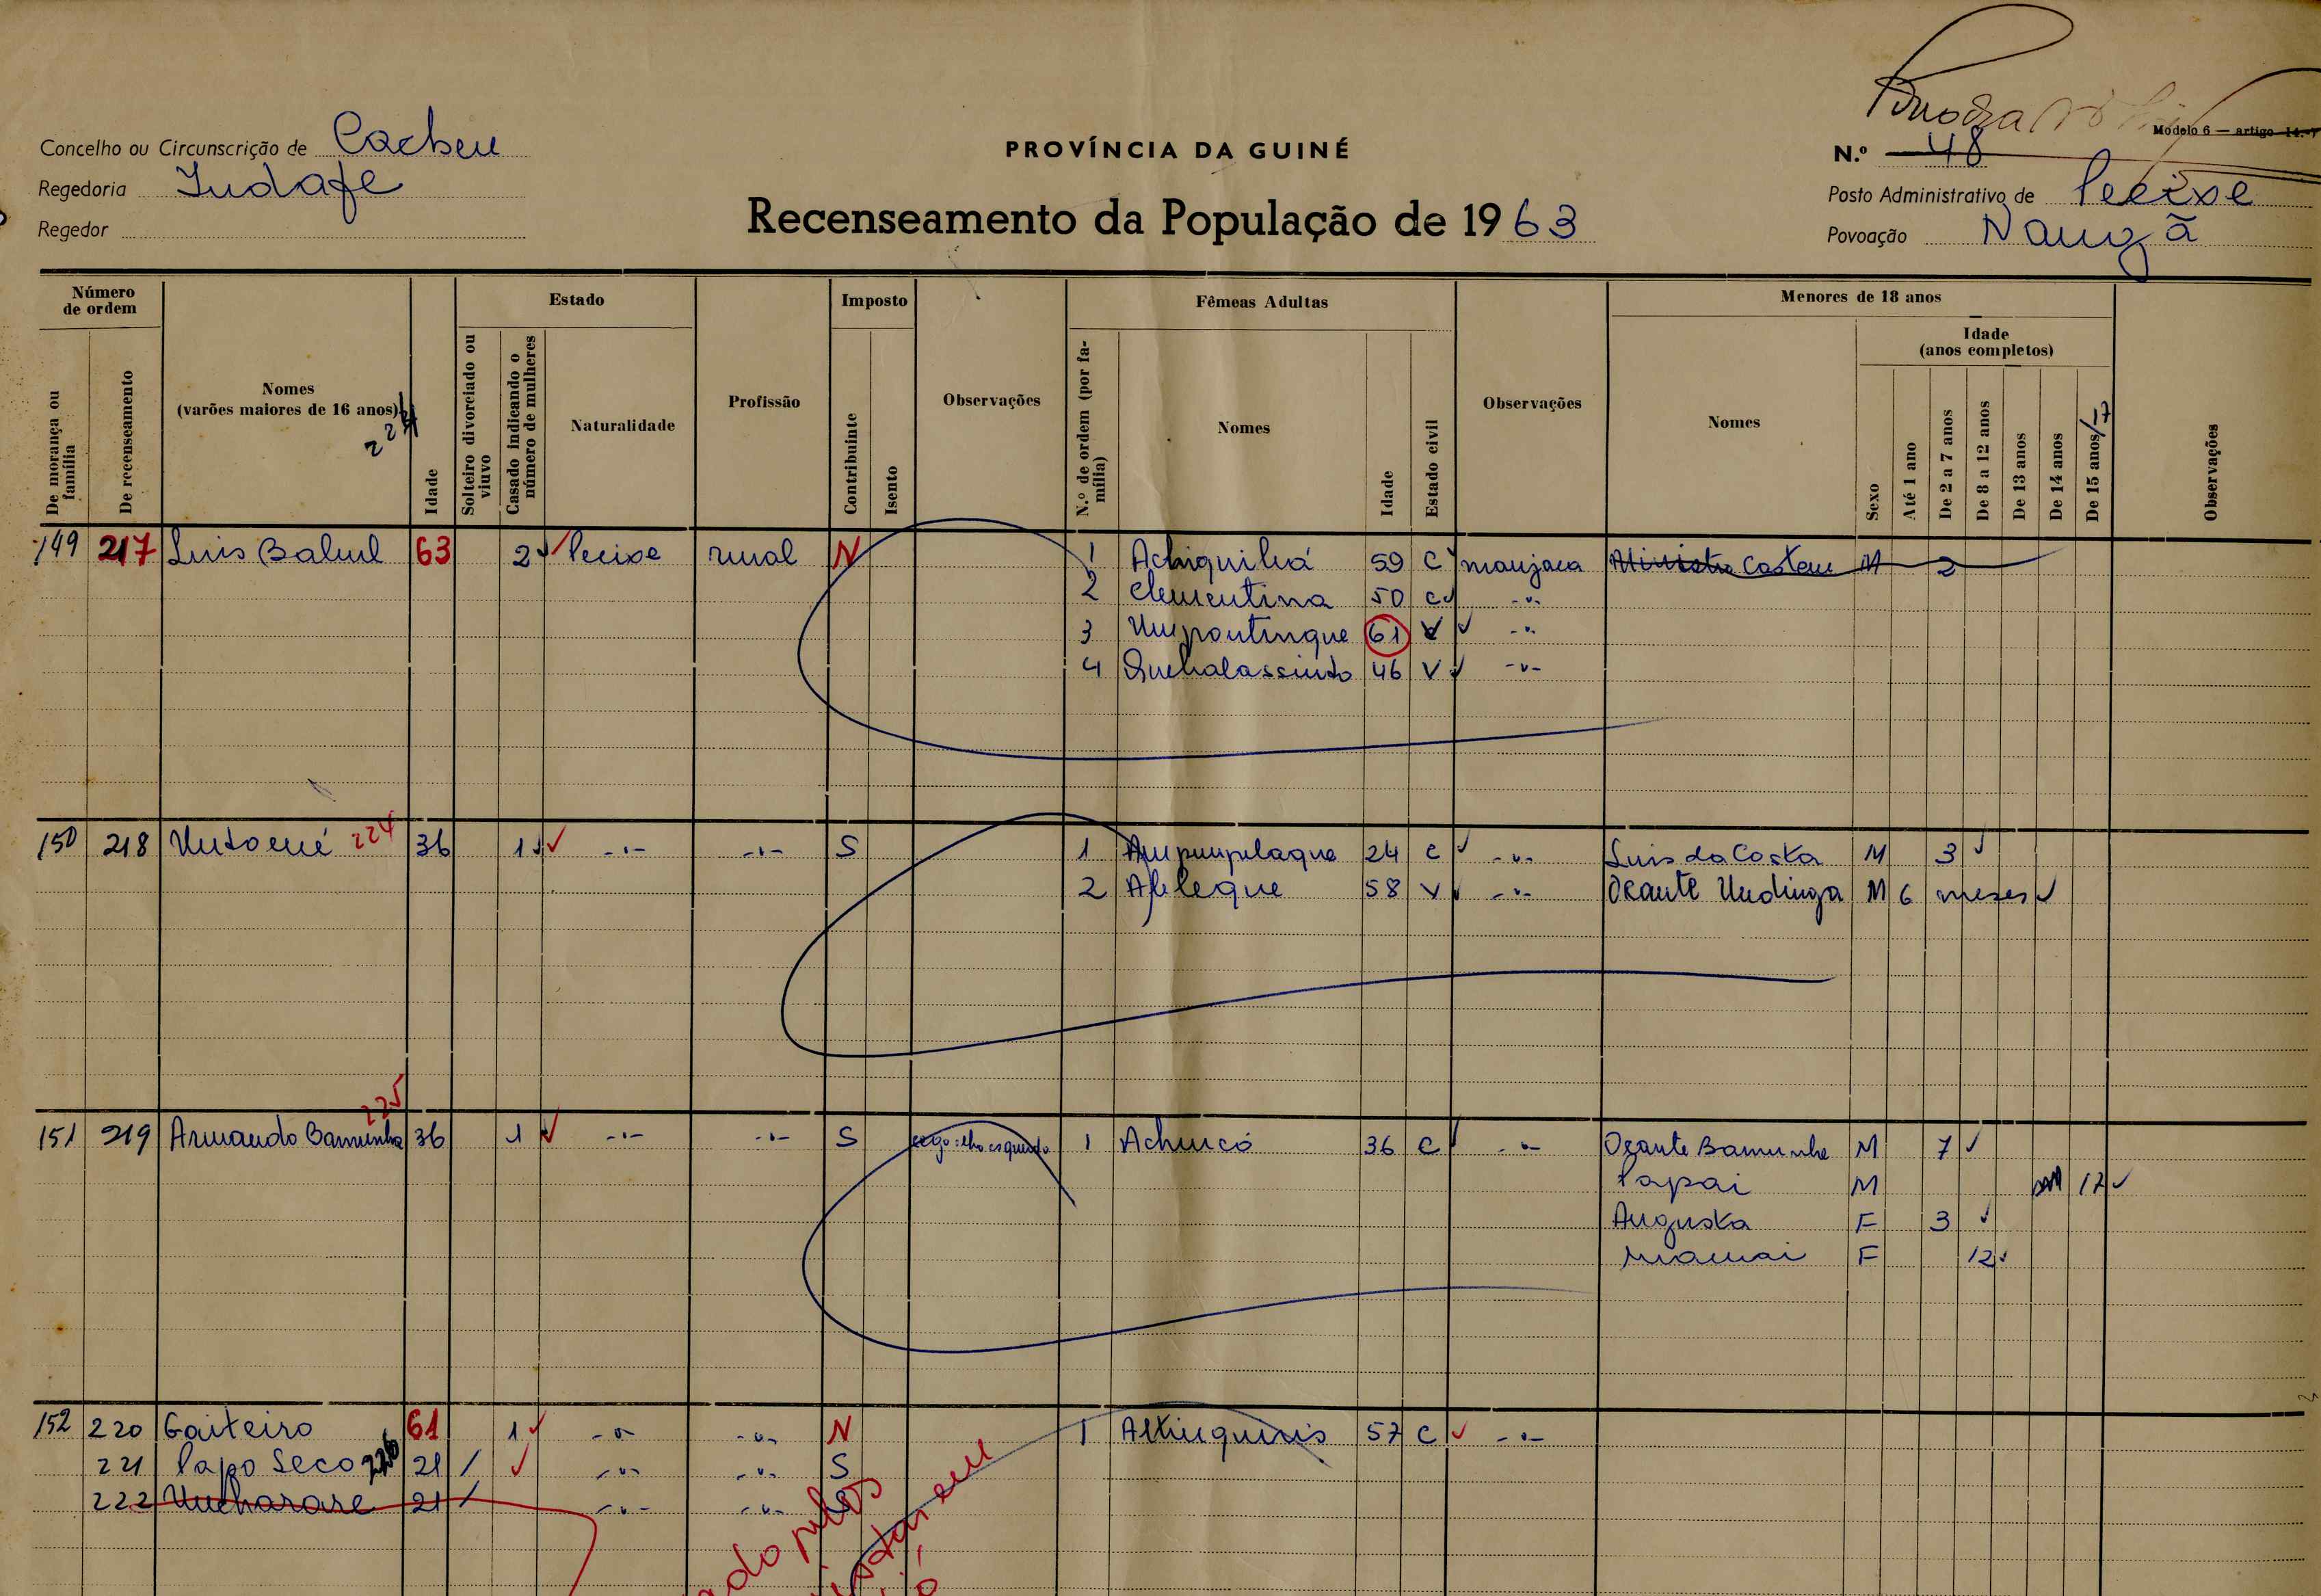 Concelho ou Circunscrição de Cacheu
Regedoria Indafe
Regedor
PROVÍNCIA DA GUINÉ
Recenseamento da População de 1963
Modelo 6 — artigo 14.º
N.º 48
Posto Administrativo de Pecixe
Povoação Nangã
Número de ordem
De morança ou família
De recenseamento
Nomes
(varões maiores de 16 anos)
224
Idade
Estado
Solteiro divorciado ou viuvo
Casado indicando o número de mulheres
Naturalidade
Profissão
Imposto
Contribuinte
Isento
Observações
Fêmeas Adultas
N.º de ordem (por família)
Nomes
Idade
Estado civil
Observações
Menores de 18 anos
Nomes
Idade
(anos completos)
Sexo
Até 1 ano
De 2 a 7 anos
De 8 a 12 anos
De 13 anos
De 14 anos
De 15 anos/17
Observações
149 217 Luis Balul 63 2 Pecixe rural N 1 Achiquilhá 59 C manjaca Casteu M 2
2 Clementina 50 C -"-
3 Umpontinque 61 V -"-
4 Quehalassinto 46 V -"-
150 218 Untoené 224 36 1 -"- -"- S 1 Ampumpulaque 24 C -"- Luis da Costa M 3
2 Afeleque 58 V -"- Ocante Undinga M 6 meses
151 219 Armando Bamunha 225 36 1 -"- -"- S cego olho esquerdo 1 Achucó 36 C -"- Ocante Bamunha M 7
Papai M 17
Augusta F 3
Mamai F 12
152 220 Gaiteiro 61 1 -"- -"- N 1 57 C -"-
221 Papo Seco 226 21 / -"- -"- S
222 Uncharare 21 / -"- -"-
pelos